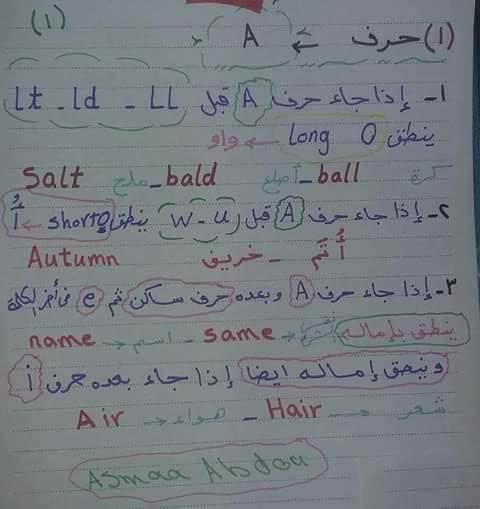 (١)
(١) حرف ← A
١- إذا جاء حرف A قبل Lt - Ld - LL
ينطق Long O ← واو
Salt ملح - bald أصلع - ball كرة
٢- إذا جاء حرف A قبل (W - U) ينطق short o ← أُ
Autumn خريف - أُتَم
٣- إذا جاء حرف A وبعده حرف ساكن ثم e فى آخر الكلمة
name → اسم - same → ينطق بإماله
وينطق إماله ايضا إذا جاء بعده حرف i
Air → هواء - Hair → شعر
Asmaa Abdou